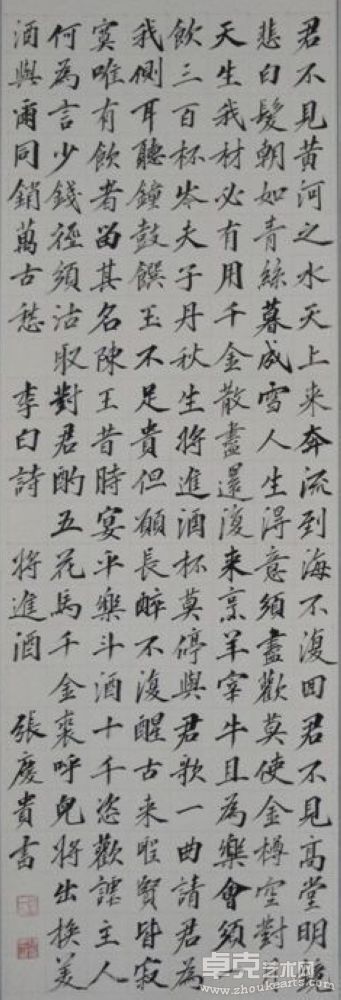 君不見黄河之水天上来奔流到海不復回君不見高堂明鏡
悲白髮朝如青絲暮成雪人生得意須盡歡莫使金樽空對月
天生我材必有用千金散盡還復来烹羊宰牛且為樂會須一
飲三百杯岑夫子丹秋生將進酒杯莫停與君歌一曲請君為
我側耳聽鐘鼓饌玉不足貴但願長醉不復醒古来聖賢皆寂
寞唯有飲者留其名陳王昔時宴平樂斗酒十千恣歡謔主人
何為言少錢徑須沽取對君酌五花馬千金裘呼兒將出換美
酒與爾同銷萬古愁 李白詩 將進酒 張慶貴書
卓克艺术网
www.zhoukearts.com